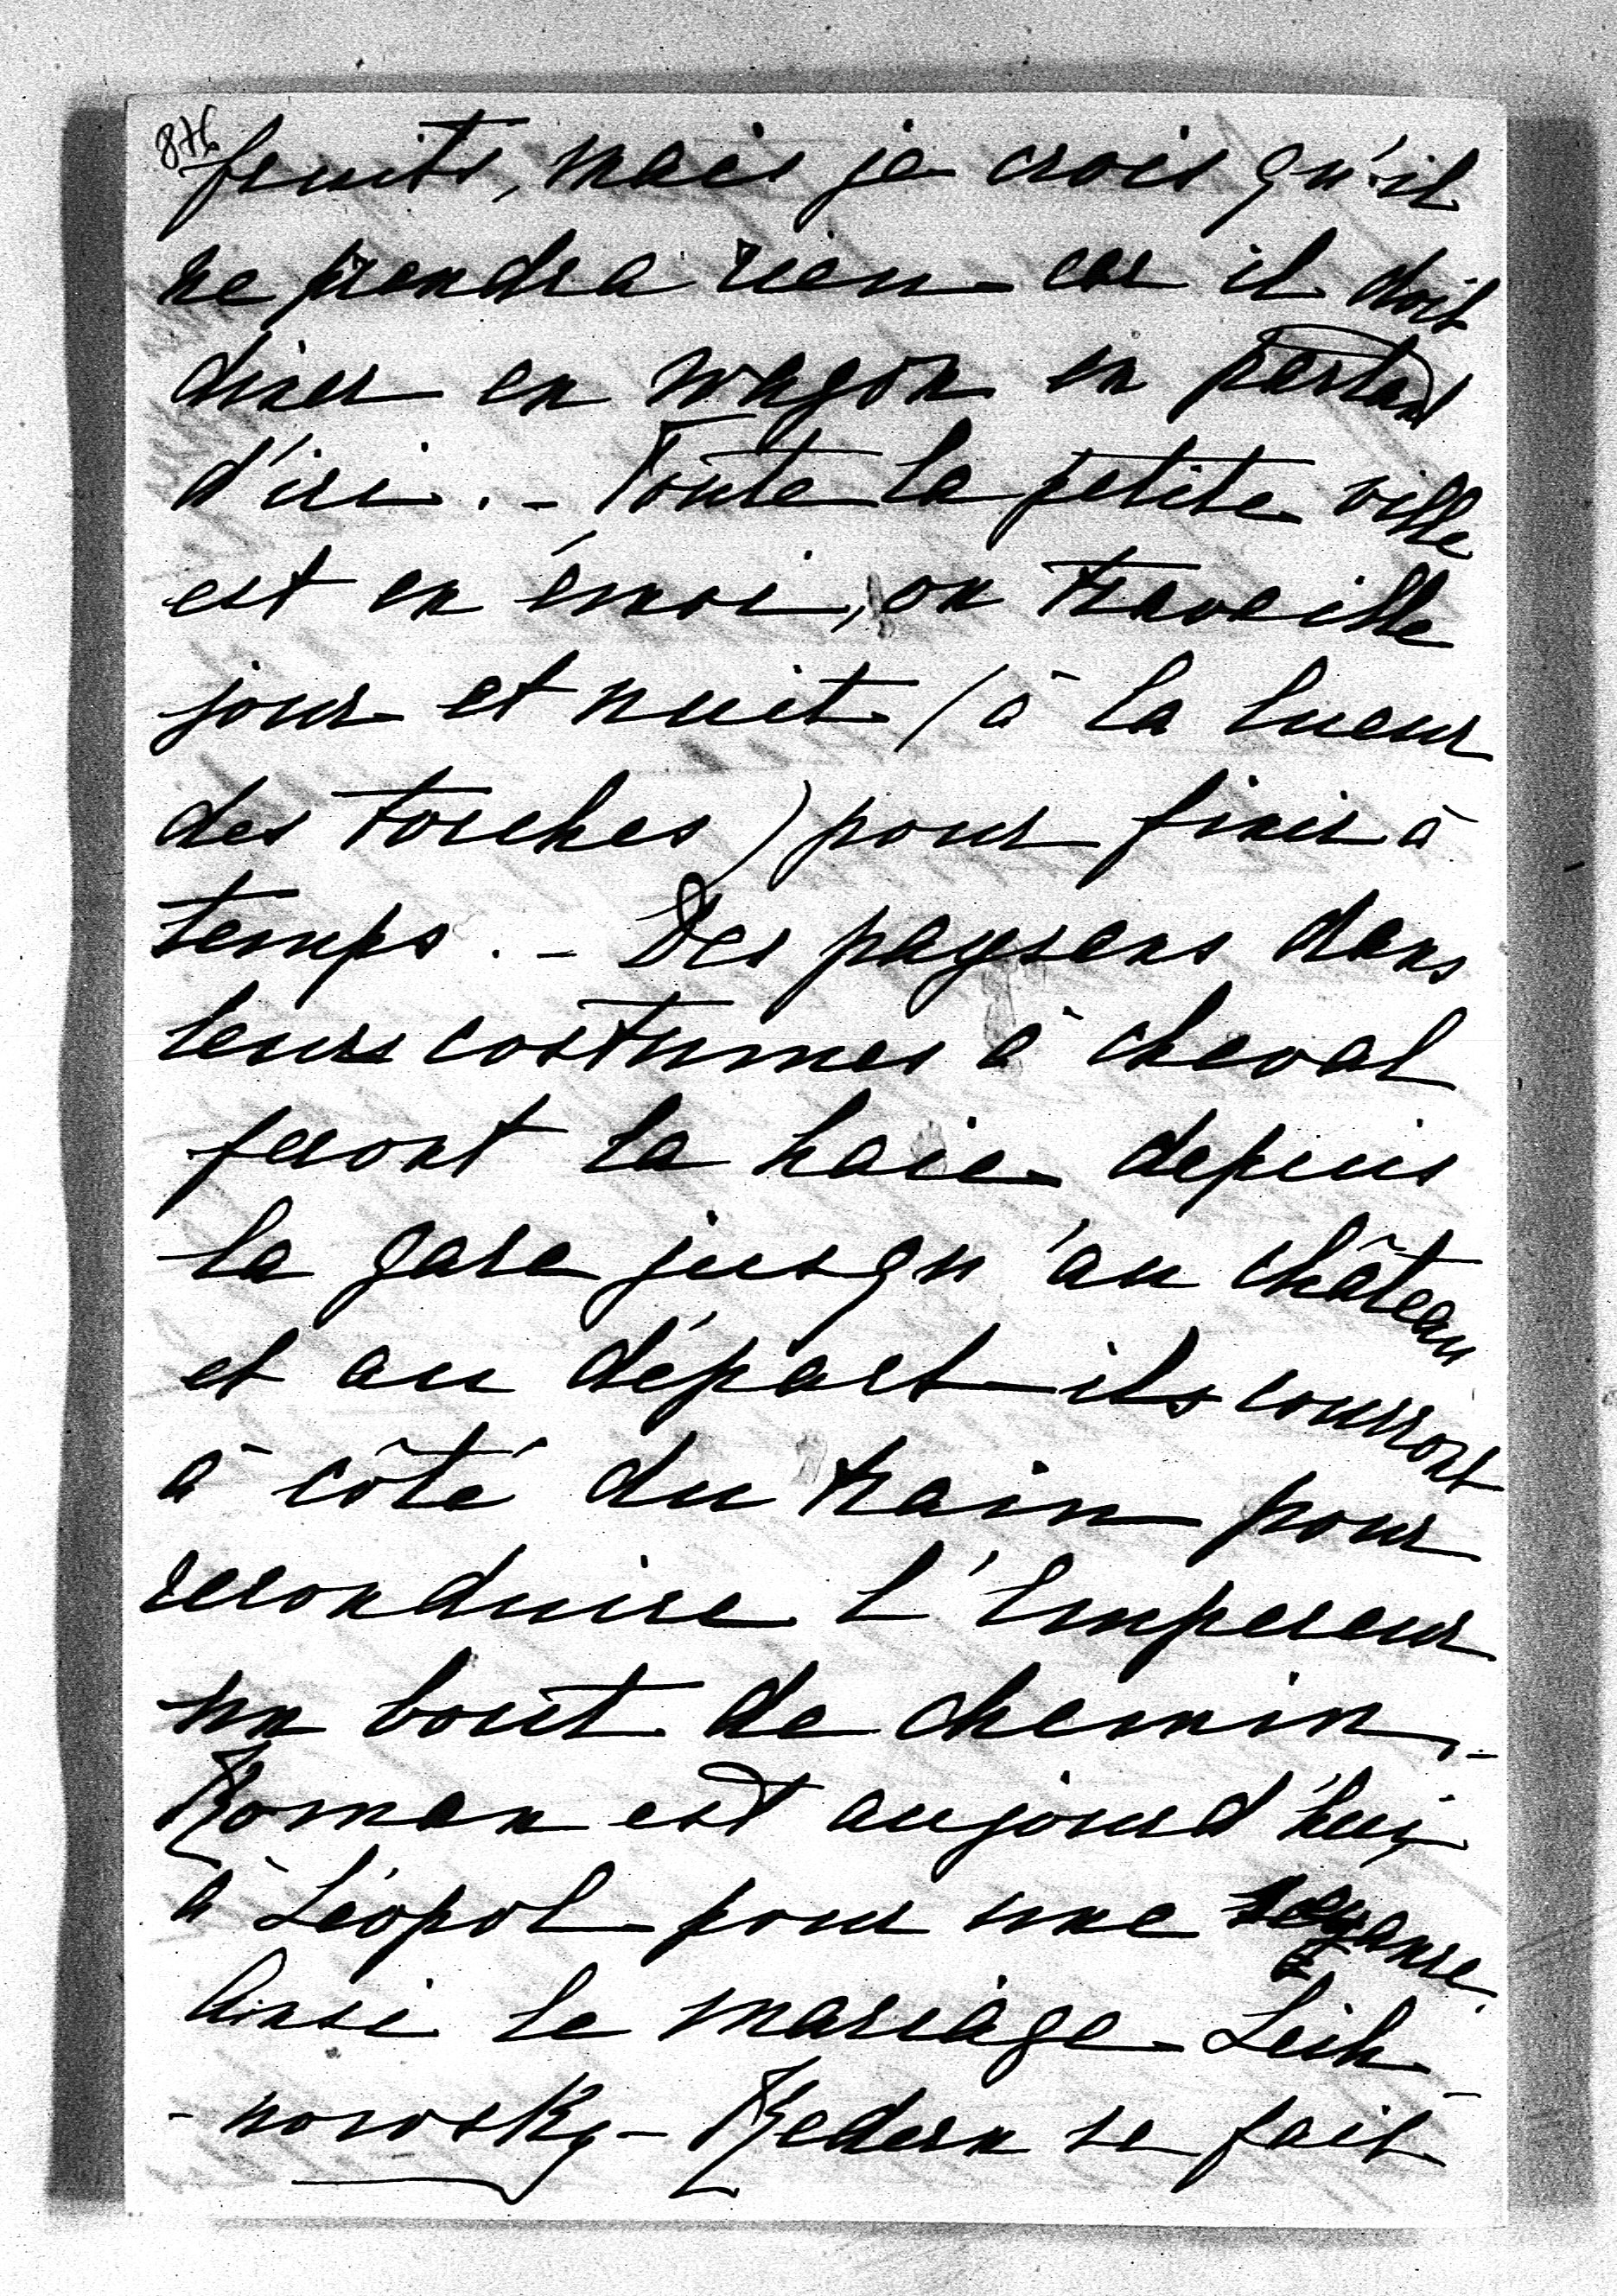 876
fruits, mais je crois qu'il
ne prendra rien car il doit
diner en wagon en partant
d'ici. - Toute la petite ville
est en émoi, on travaille
jour et nuit (à la lueur
des torches) pour finir à
temps. - Des paysans dans
leurs costumes à cheval
feront la haie depuis
la gare jusqu'au château
et au départ ils courront
à côté du train pour
reconduire l'Empereur
un bout de chemin. -
Roman est aujourd'hui
à Léopol pour une séance.
Ainsi le mariage Lich-
-nowsky - Redern se fait